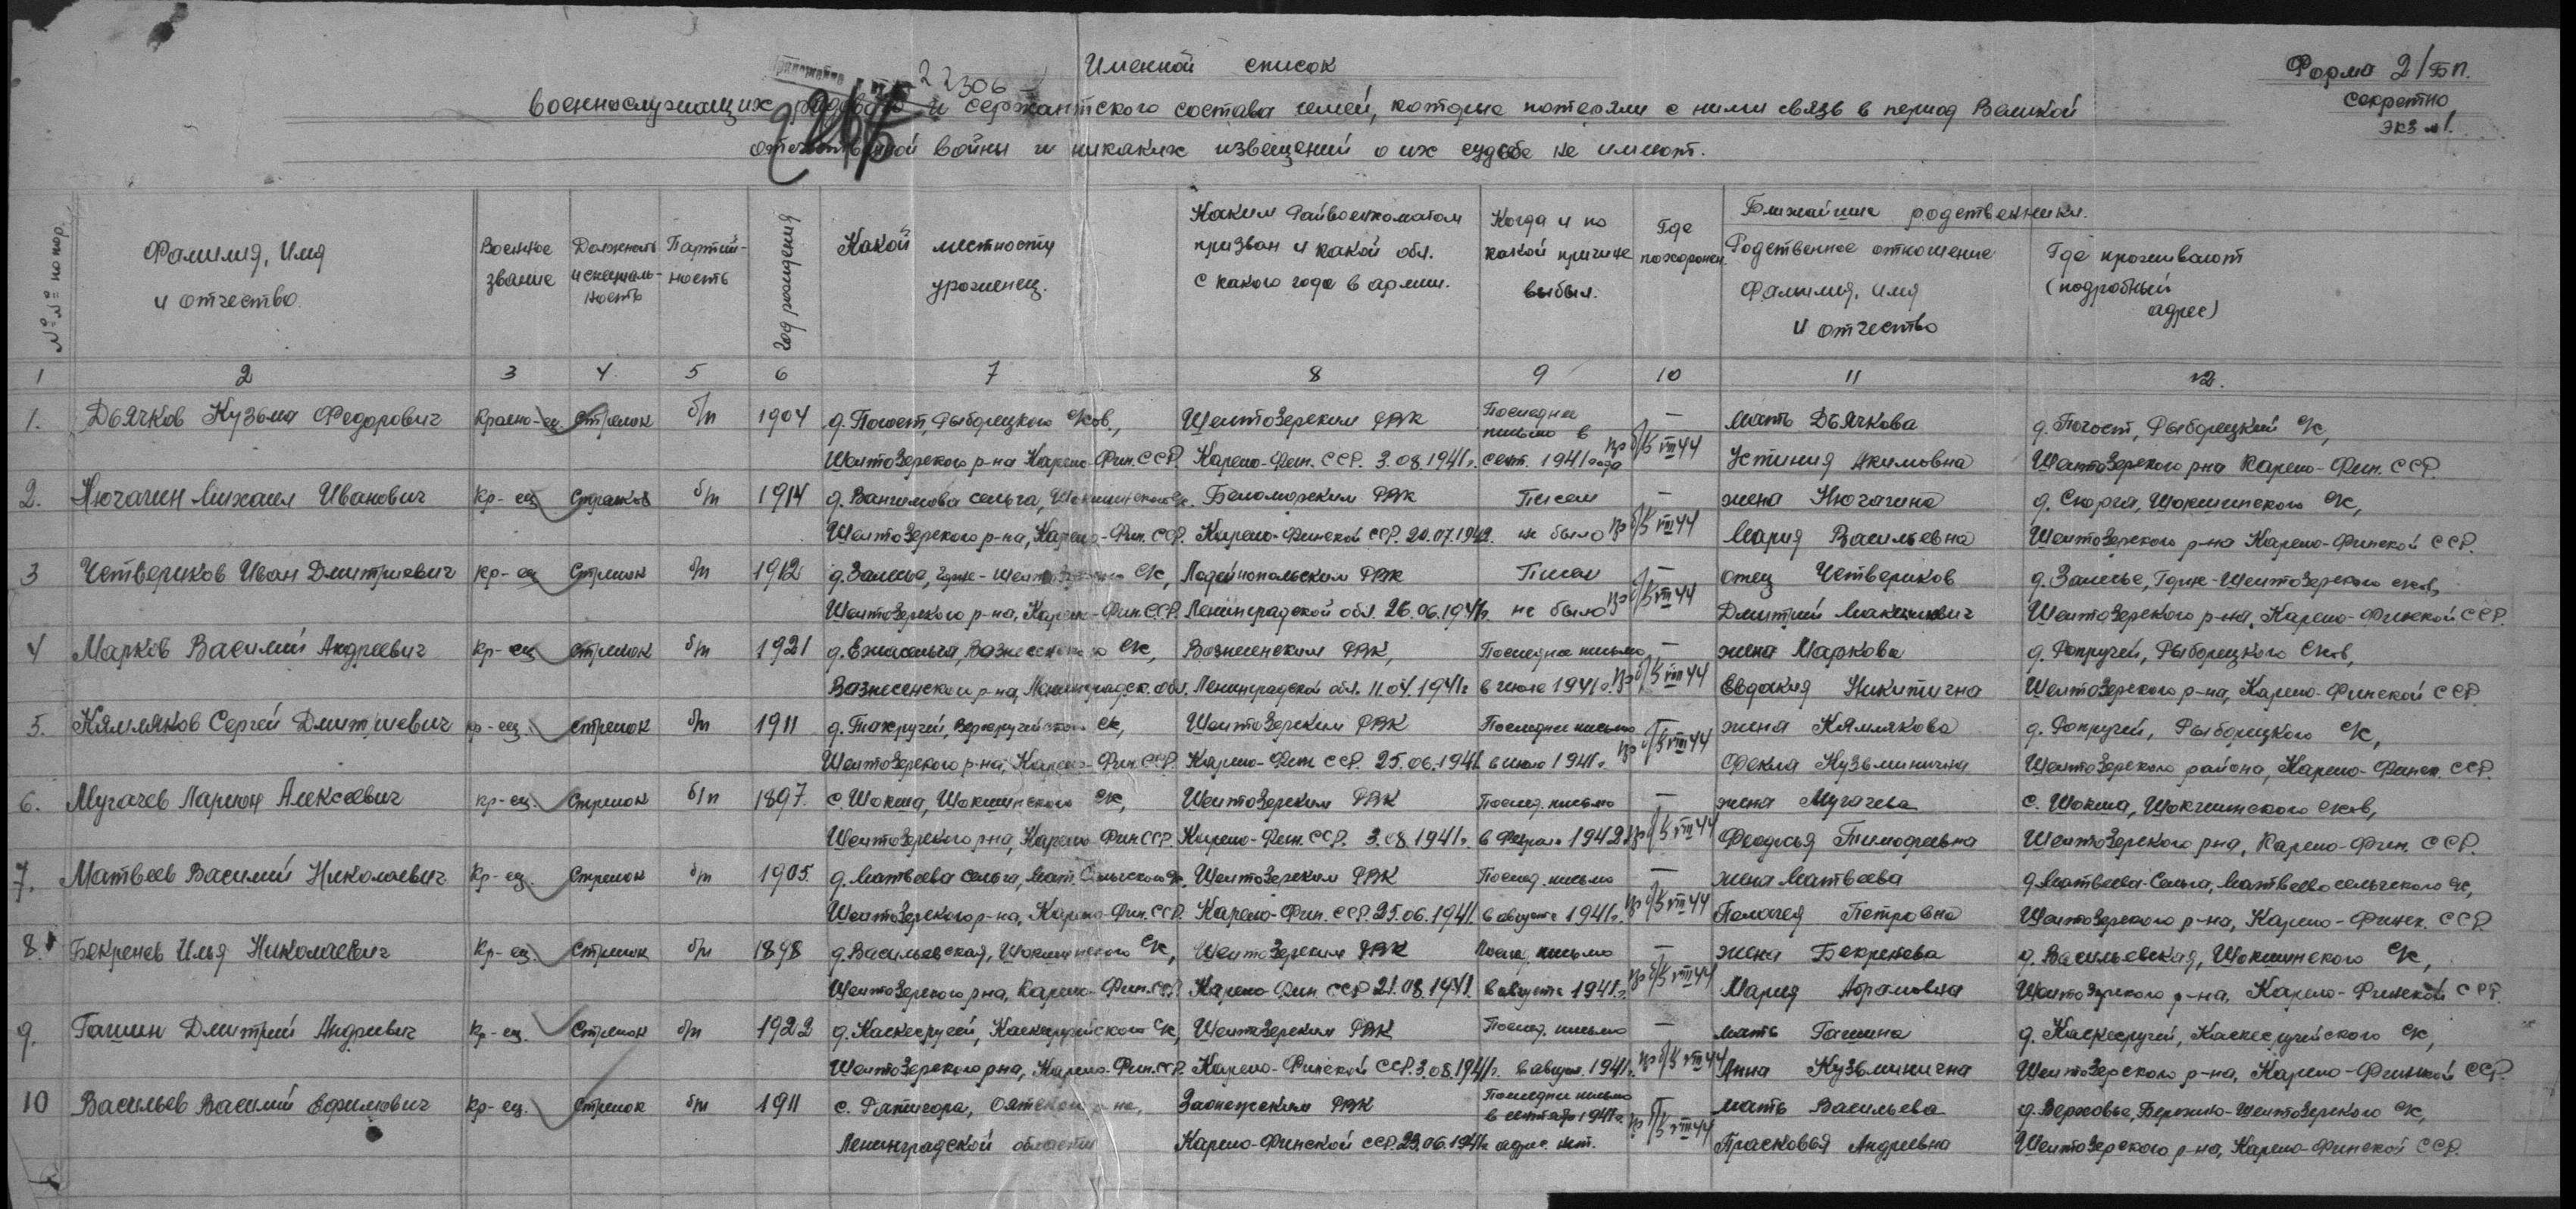 Именной список
Форма 2/БП.
Секретно
экз №1.
Приложение
22306
военнослужащих рядового и сержантского состава семей, которые потеряли с ними связь в период Великой
отечественной войны и никаких извещений о их судьбе не имеют.
№№ по пор.
Фамилия, Имя
и отчество.
Военное
звание
Должность
и специаль-
ность
Партий-
ность
год рождения
Какой местности
уроженец.
Каким Райвоенкоматом
призван и какой обл.
с какого года в армии.
Когда и по
какой причине
выбыл.
Где
похоронен
Ближайшие родственники.
Родственное отношение
Фамилия, имя
и отчество
Где проживают
(подробный
адрес)
1 2 3 4 5 6 7 8 9 10 11 12.
1. Дьячков Кузьма Федорович Красно-ец. Стрелок б/п 1904 д. Погост, Рыборецкого с/сов., Шелтозерским РВК Последнее письмо в — мать Дьячкова д. Погост, Рыборецкий с/с,
Шелтозерского р-на Карело-Фин. ССР. Карело-Фин. ССР. 3.08.1941г. сент. 1941 года VIII 44 Устиния Акимовна Шелтозерского р-на Карело-Фин. ССР.
2. Нючагин Михаил Иванович Кр-ец Стрелков б/п 1914 д. Вангимова сельга, Шокшинского с/с. Беломорским РВК Писем — жена Нючагина д. Скорга, Шокшинского с/с,
Шелтозерского р-на, Карело-Фин. ССР. Карело-Финской ССР. 20.07.1942. не было VIII 44 Мария Васильевна Шелтозерского р-на Карело-Финской ССР.
3 Четвериков Иван Дмитриевич кр-ец Стрелок б/п 1912 д. Залесье, Горне-Шелтозерского с/с, Лодейнопольским РВК Писем — отец Четвериков д. Залесье, Горне-Шелтозерского с/сов,
Шелтозерского р-на, Карело-Фин. ССР. Ленинградской обл. 26.06.1941г. не было VIII 44 Дмитрий Шелтозерского р-на, Карело-Финской ССР.
4 Марков Василий Андреевич кр-ец Стрелок б/п 1921 д. Ежасельга, Вознесенского с/с, Вознесенским РВК, Последнее письмо — жена Маркова д. Ропручей, Рыборецкого с/сов,
Вознесенского р-на, Ленинградск. обл. Ленинградской обл. 11.04.1941г в июле 1941г. VIII 44 Евдокия Никитична Шелтозерского р-на, Карело-Финской ССР
5. Кямляков Сергей Дмитриевич кр-ец. стрелок б/п 1911 д. Тихручей, Верхручейского с/с, Шелтозерским РВК Последнее письмо — жена Кямлякова д. Ропручей, Рыборецкого с/с,
Шелтозерского р-на, Карело-Фин ССР. Карело-Фин ССР. 25.06.1941. в июле 1941г. VIII 44 Фекла Кузьминична Шелтозерского района, Карело-Финск. ССР.
6. Мугачев Ларион Алексеевич кр-ец. Стрелок б/п 1897. с. Шокша, Шокшинского с/с, Шелтозерским РВК Послед. письмо — жена Мугачева с. Шокша, Шокшинского с/сов,
Шелтозерского р-на, Карело-Фин ССР. Карело-Фин. ССР. 3.08.1941г. в феврале 1942г. VIII 44 Феодосья Тимофеевна Шелтозерского р-на, Карело-Фин. ССР.
7. Матвеев Василий Николаевич Кр-ец. Стрелок б/п 1905. д. Матвеева сельга, Мат. Сельгского с/с. Шелтозерским РВК Послед. письмо — жена Матвеева д. Матвеева-Сельга, Матвеевосельгского с/с,
Шелтозерского р-на, Карело-Фин. ССР. Карело-Фин. ССР. 25.06.1941. в августе 1941г. VIII 44 Пелагея Петровна Шелтозерского р-на, Карело-Финск. ССР
8. Бекренев Илья Николаевич Кр-ец Стрелок б/п 1898 д. Васильевская, Шокшинского с/с, Шелтозерским РВК Послед. письмо — жена Бекренева д. Васильевская, Шокшинского с/с,
Шелтозерского р-на, Карело-Фин. ССР Карело-Фин ССР 21.08.1941. в августе 1941г. VIII 44 Мария Абрамовна Шелтозерского р-на, Карело-Финской ССР.
9. Гашин Дмитрий Андреевич Кр-ец. Стрелок б/п 1922 д. Каскесручей, Каскесручейского с/с, Шелтозерским РВК Послед. письмо — мать Гашина д. Каскесручей, Каскесручейского с/с,
Шелтозерского р-на, Карело-Фин. ССР. Карело-Финской ССР. 3.08.1941г. в август. 1941г. VIII 44 Анна Кузьминична Шелтозерского р-на, Карело-Финской ССР.
10 Васильев Василий Ефимович Кр-ец. Стрелок б/п 1911 с. Ратигора, Оятского р-на, Заонежским РВК Последнее письмо в сентябр 1941г. мать Васильева д. Верховье, Бережно-Шелтозерского с/с,
Ленинградской области Карело-Финской ССР. 23.06.1941г адрес. нет. VIII 44 Прасковья Андреевна Шелтозерского р-на, Карело-Финской ССР.